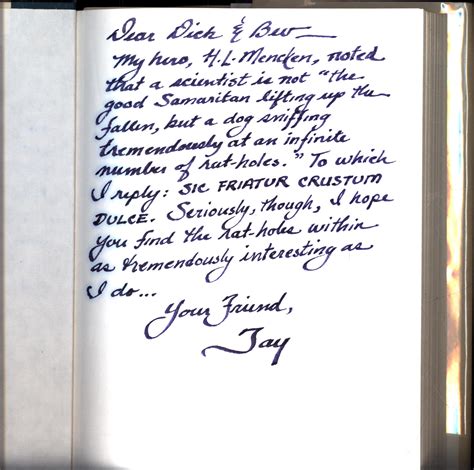 Dear Dick & Bev—
My hero, H.L. Mencken, noted
that a scientist is not "the
good Samaritan lifting up the
fallen, but a dog sniffing
tremendously at an infinite
number of rat-holes." To which
I reply: SIC FRIATUR CRUSTUM
DULCE. Seriously, though, I hope
you find the rat-holes within
as tremendously interesting as
I do...
Your Friend,
Jay